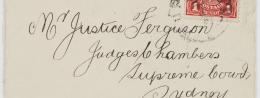 Mr Justice Ferguson
Judges Chambers
Supreme Court
Sydney